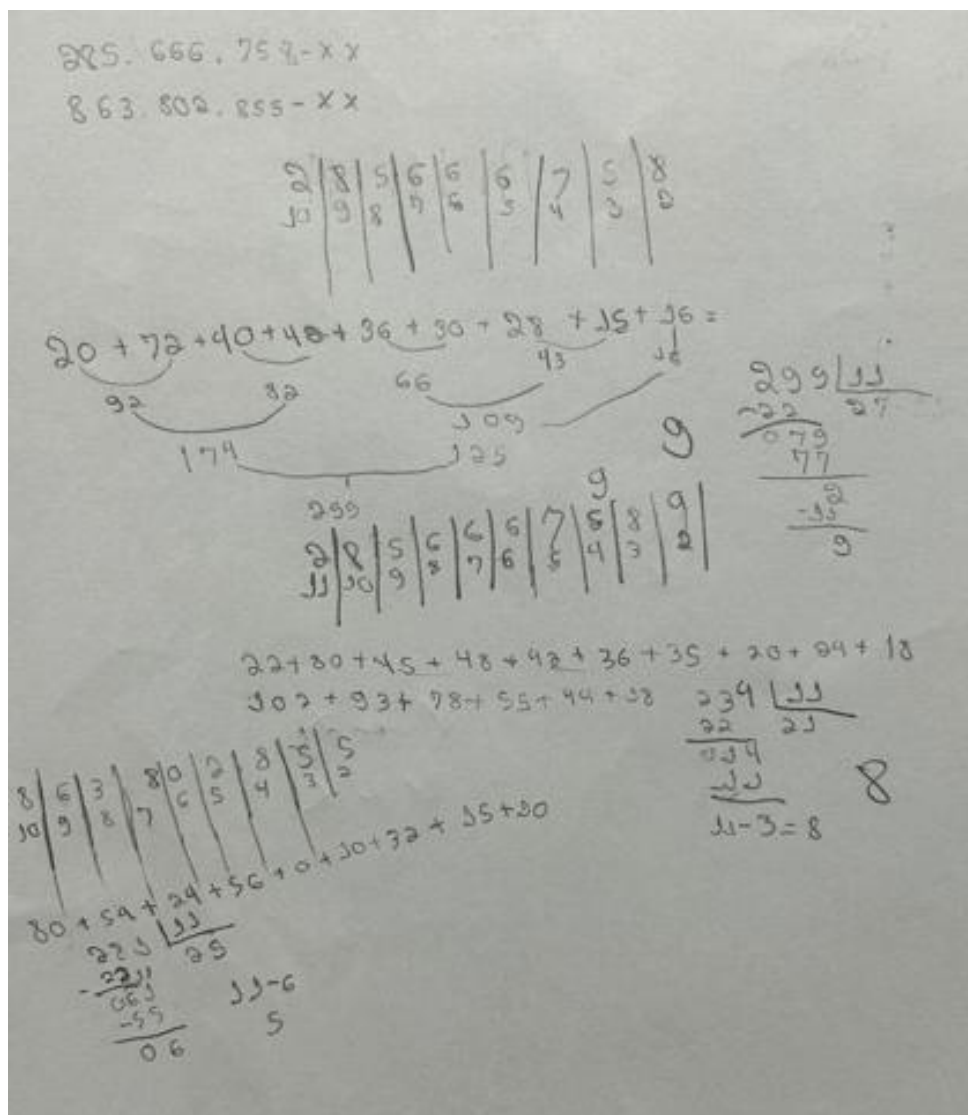 285.666.758-XX
863.802.855-XX
2 | 8 | 5 | 6 | 6 | 6 | 7 | 5 | 8
10 | 9 | 8 | 7 | 6 | 5 | 4 | 3 | 2
20 + 72 + 40 + 42 + 36 + 30 + 28 + 15 + 16 =
92 82 66 43 16
109
174 125
299
299 | 11
-22 27
079
77
2
-11
9
9
9
2 | 8 | 5 | 6 | 6 | 6 | 7 | 5 | 8 | 9
11 | 10 | 9 | 8 | 7 | 6 | 5 | 4 | 3 | 2
22 + 80 + 45 + 48 + 42 + 36 + 35 + 20 + 24 + 18
102 + 93 + 78 + 55 + 44 + 18
234 | 11
22 21
014
11
11-3=8
8
8 | 6 | 3 | 8 | 0 | 2 | 8 | 5 | 5
10 | 9 | 8 | 7 | 6 | 5 | 4 | 3 | 2
80 + 54 + 24 + 56 + 0 + 10 + 32 + 15 + 10
11
25
061
-55
06
11-6
5